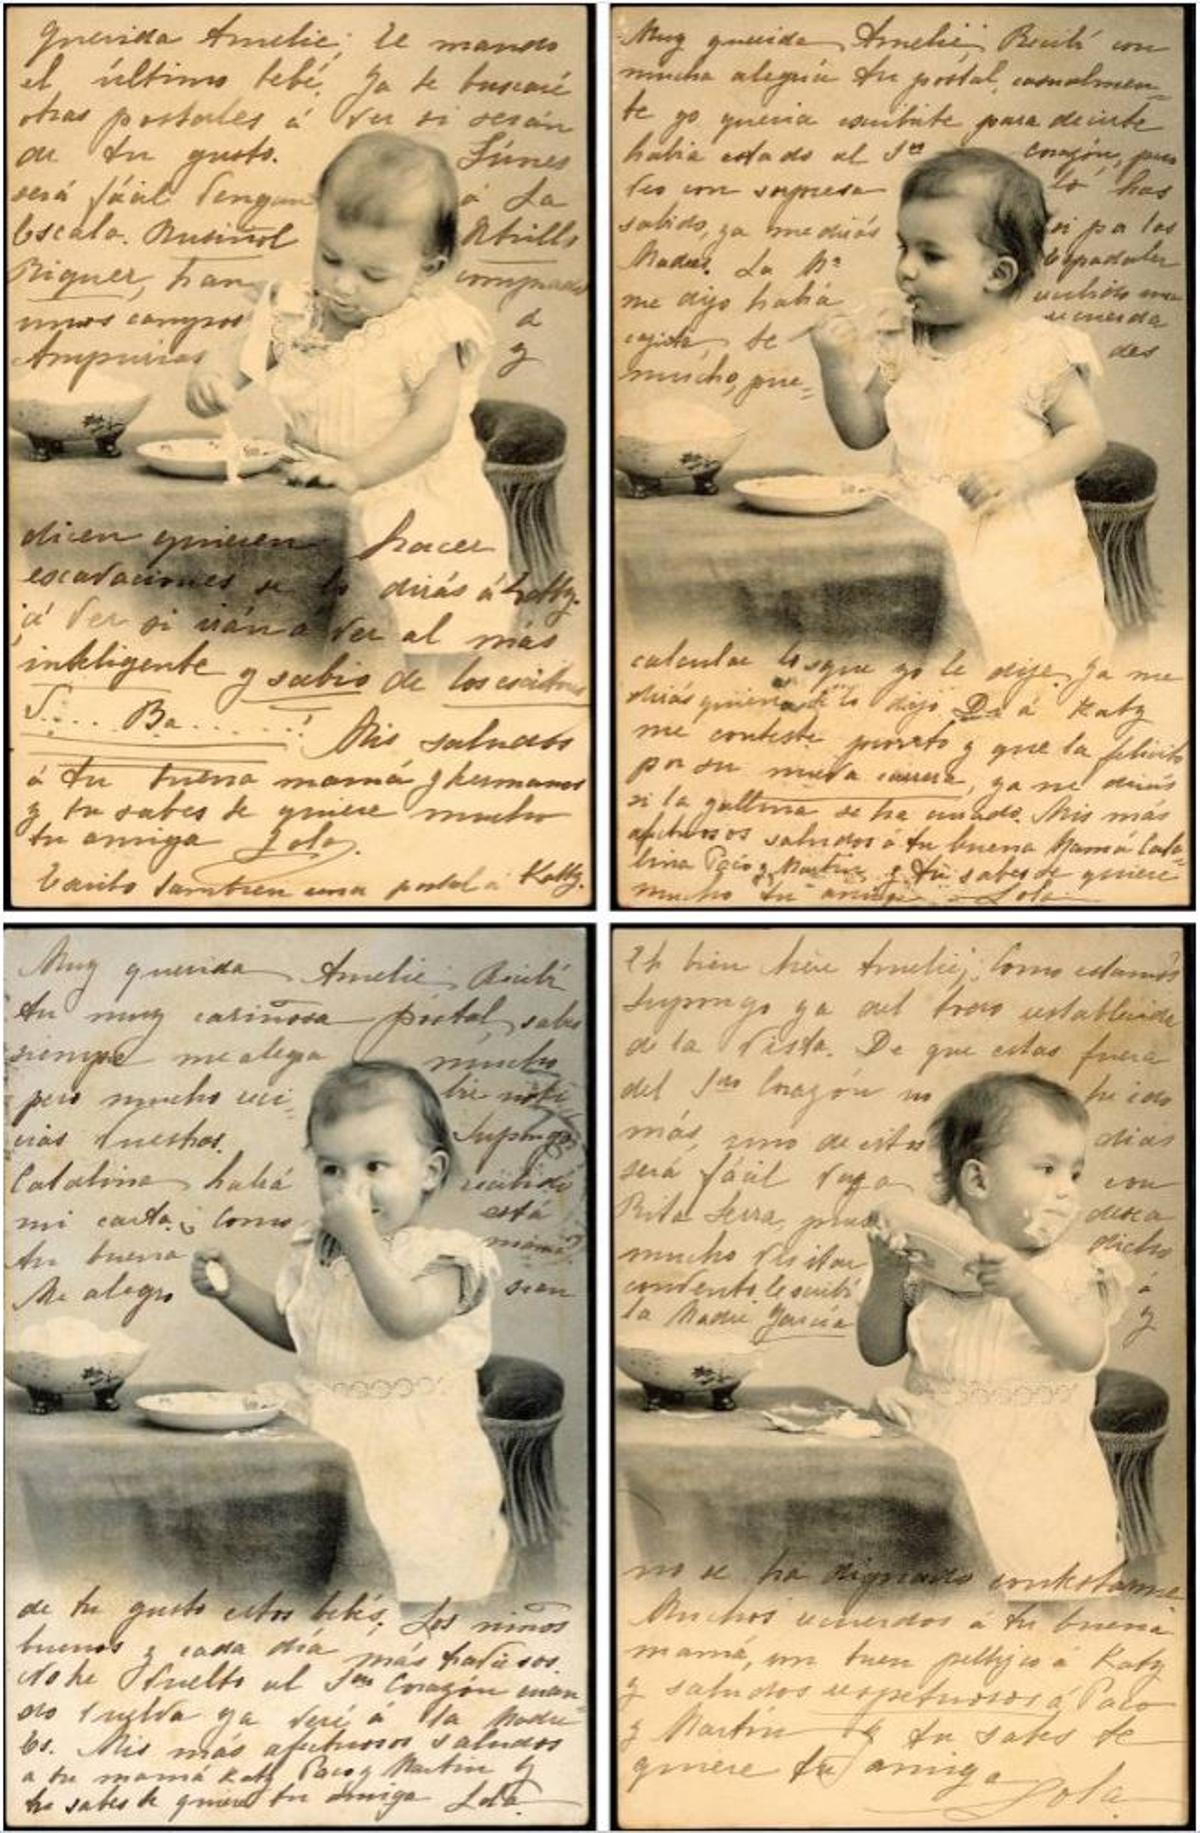 Querida Amelie; Te mando
el último bebé. Ya te buscaré
otras postales á ver si serán
de tu gusto. Lúnes
será fácil vengan á La
Escala. Rusiñol Utrillo
Riquer, han comprado
unos campos á
Ampurias y
dicen quieren hacer
escavaciones se lo dirás á Katty.
á ver si irán á ver al más
inteligente y sabio de los escritores
S.... Ba.......! Mis saludos
á tu buena mamá y hermanos
y tu sabes te quiere mucho
tu amiga Lola.
Escribo tambien una postal á Katty.
Muy querida Amelie; Recibí con
mucha alegria tu postal, casualmen-
te yo queria escribirte para decirte
habia estado al Sdo Corazón, pero
veo con sorpresa lo has
sabido, ya me dirás si por las
Madres. La Me
me dijo habiá recibido una
cajita, te recuerda
mucho, pue- des
calcular lo que yo le dije. Ya me
dirás quien te lo dijo. Di á Katy
me conteste pronto y que la felicito
por su nueva carrera, ya me dirás
si la gallina se ha criado. Mis más
afectuosos saludos á tu buena Mamá Cata-
lina Paco y Martin y tu sabes te quiere
mucho tu amiga Lola
Muy querida Amelie; Recibí
tu muy cariñosa postal, sabes
siempre me alegra mucho
pero mucho reci- bir noti-
cias vuestras. Supongo
Catalina habá recibido
mi carta ¿Como está
tu buena mamá?
Me alegro sean
de tu gusto estos bebés. Los niños
buenos y cada diá más traviesos.
No he vuelto al Sdo Corazón cuan-
do vuelva ya veré á la Madre
Es. Mis más afectuosos saludos
a tu mamá Katy Paco y Martin y
tu sabes te quiere tu amiga Lola
Eh bien chère Amelie; Como estamos
Supongo ya del todo restablecida
de la vista. De que estas fuera
del Sdo Corazón no he ido
más, uno de estos diás
será fácil vaya con
Rita Serra, pues desea
mucho visitar dicho
convento le escribí á
la Madre Garcia y
no se ha dignado contestarme
Muchos recuerdos á tu buena
mamá, un buen pellizco á Katy
y saludos respetuosos á Paco
y Martin y tu sabes te
quiere tu amiga
Lola